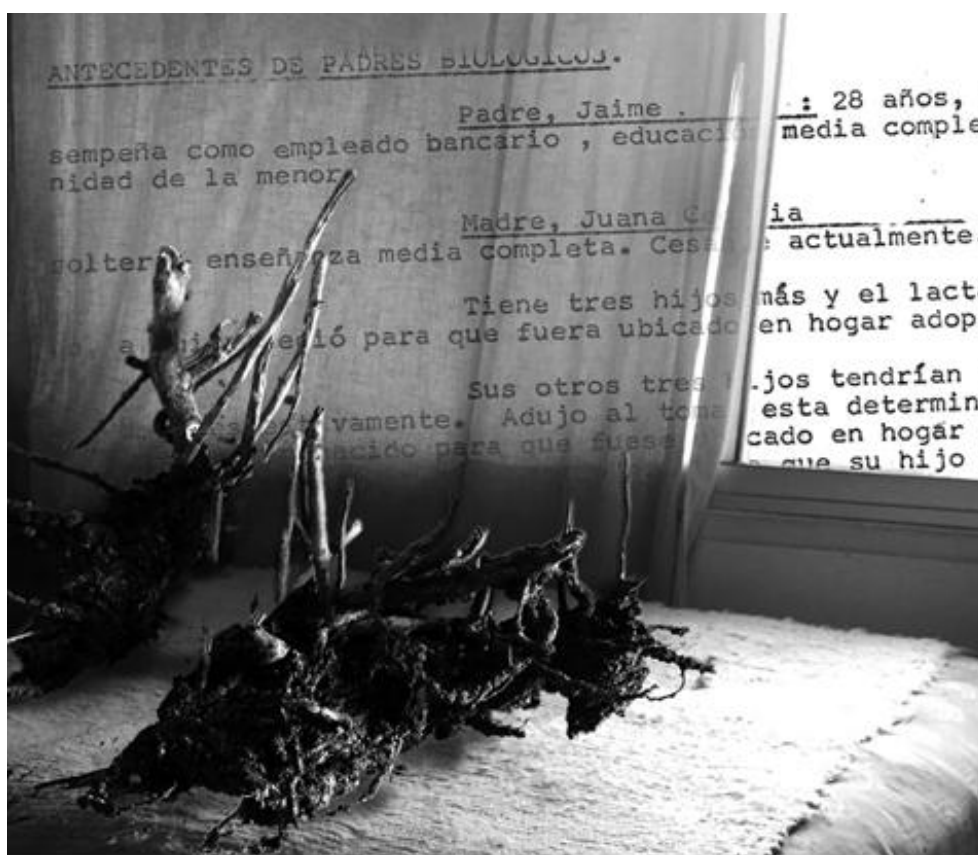 ANTECEDENTES DE PADRES BIOLOGICOS.
Padre, Jaime . : 28 años,
sempeña como empleado bancario , educación media comple
nidad de la menor.
Madre, Juana
soltera, enseñanza media completa. Cesante actualmente
Tiene tres hijos más y el lact
para que fuera ubicado en hogar adop
Sus otros tres hijos tendrían
Adujo al tomar esta determin
para que fuese ubicado en hogar
que su hijo